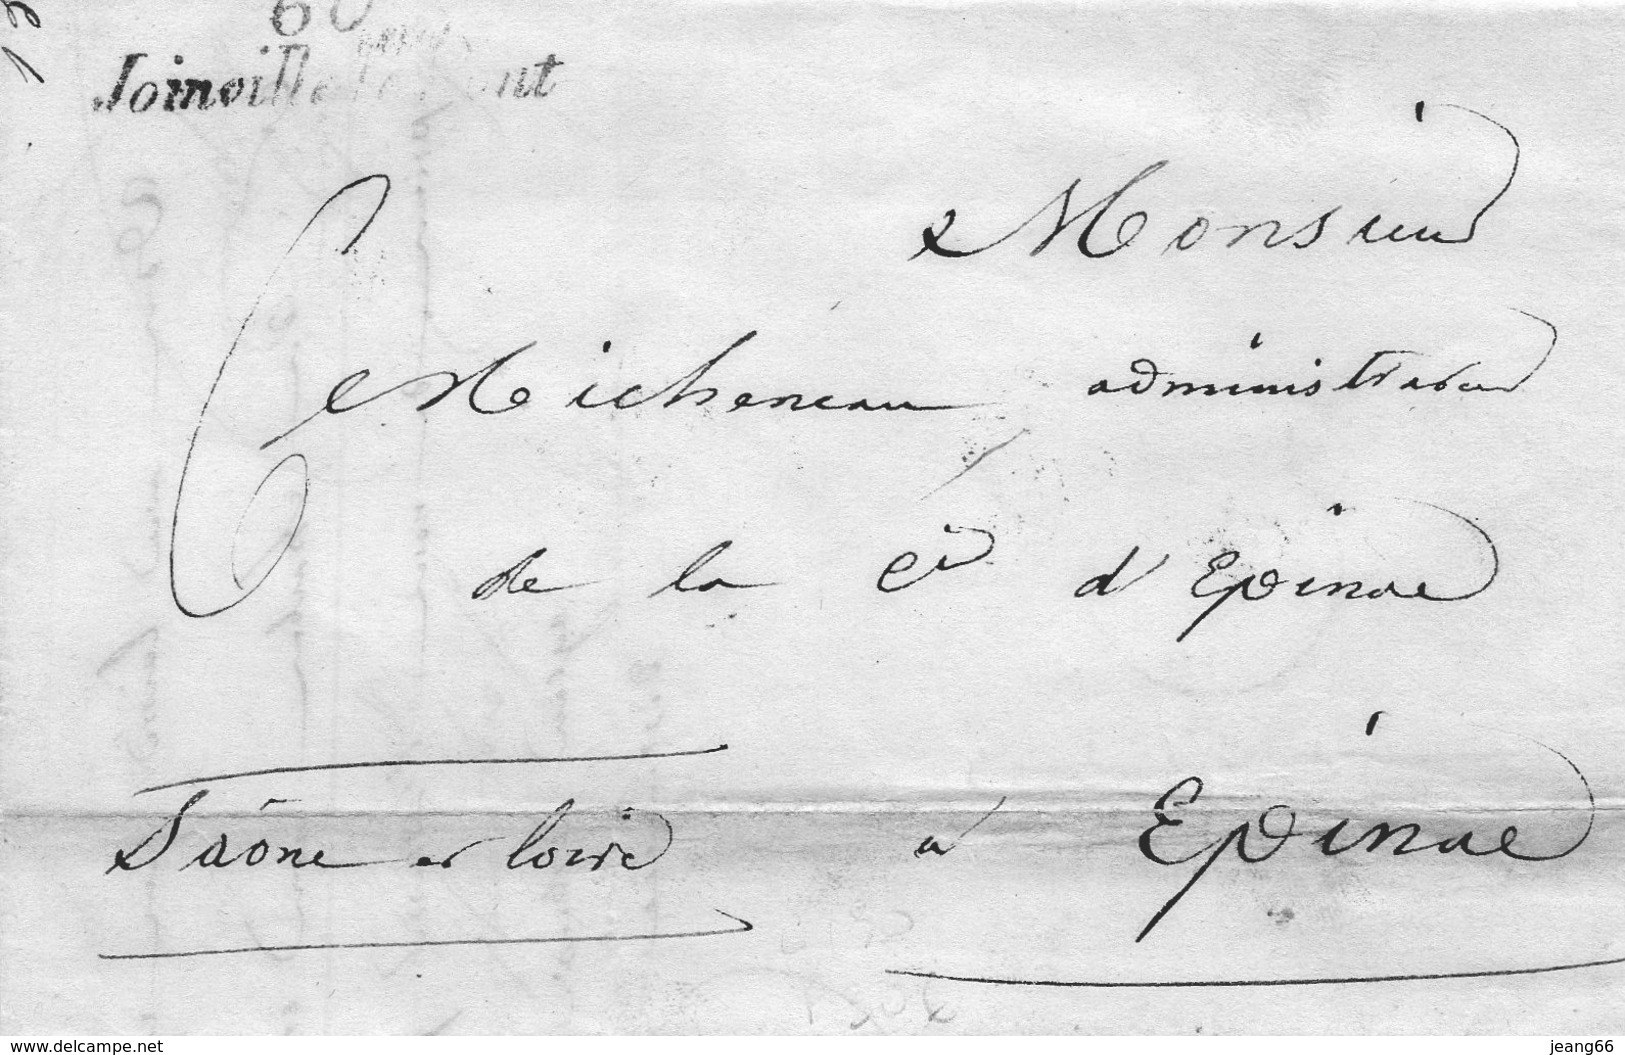 60
Joinville le Pont
Monsieur
Micheneau administrateur
de la Cie d'Epinac
Saône et Loire à Epinac
www.delcampe.net
jeang66